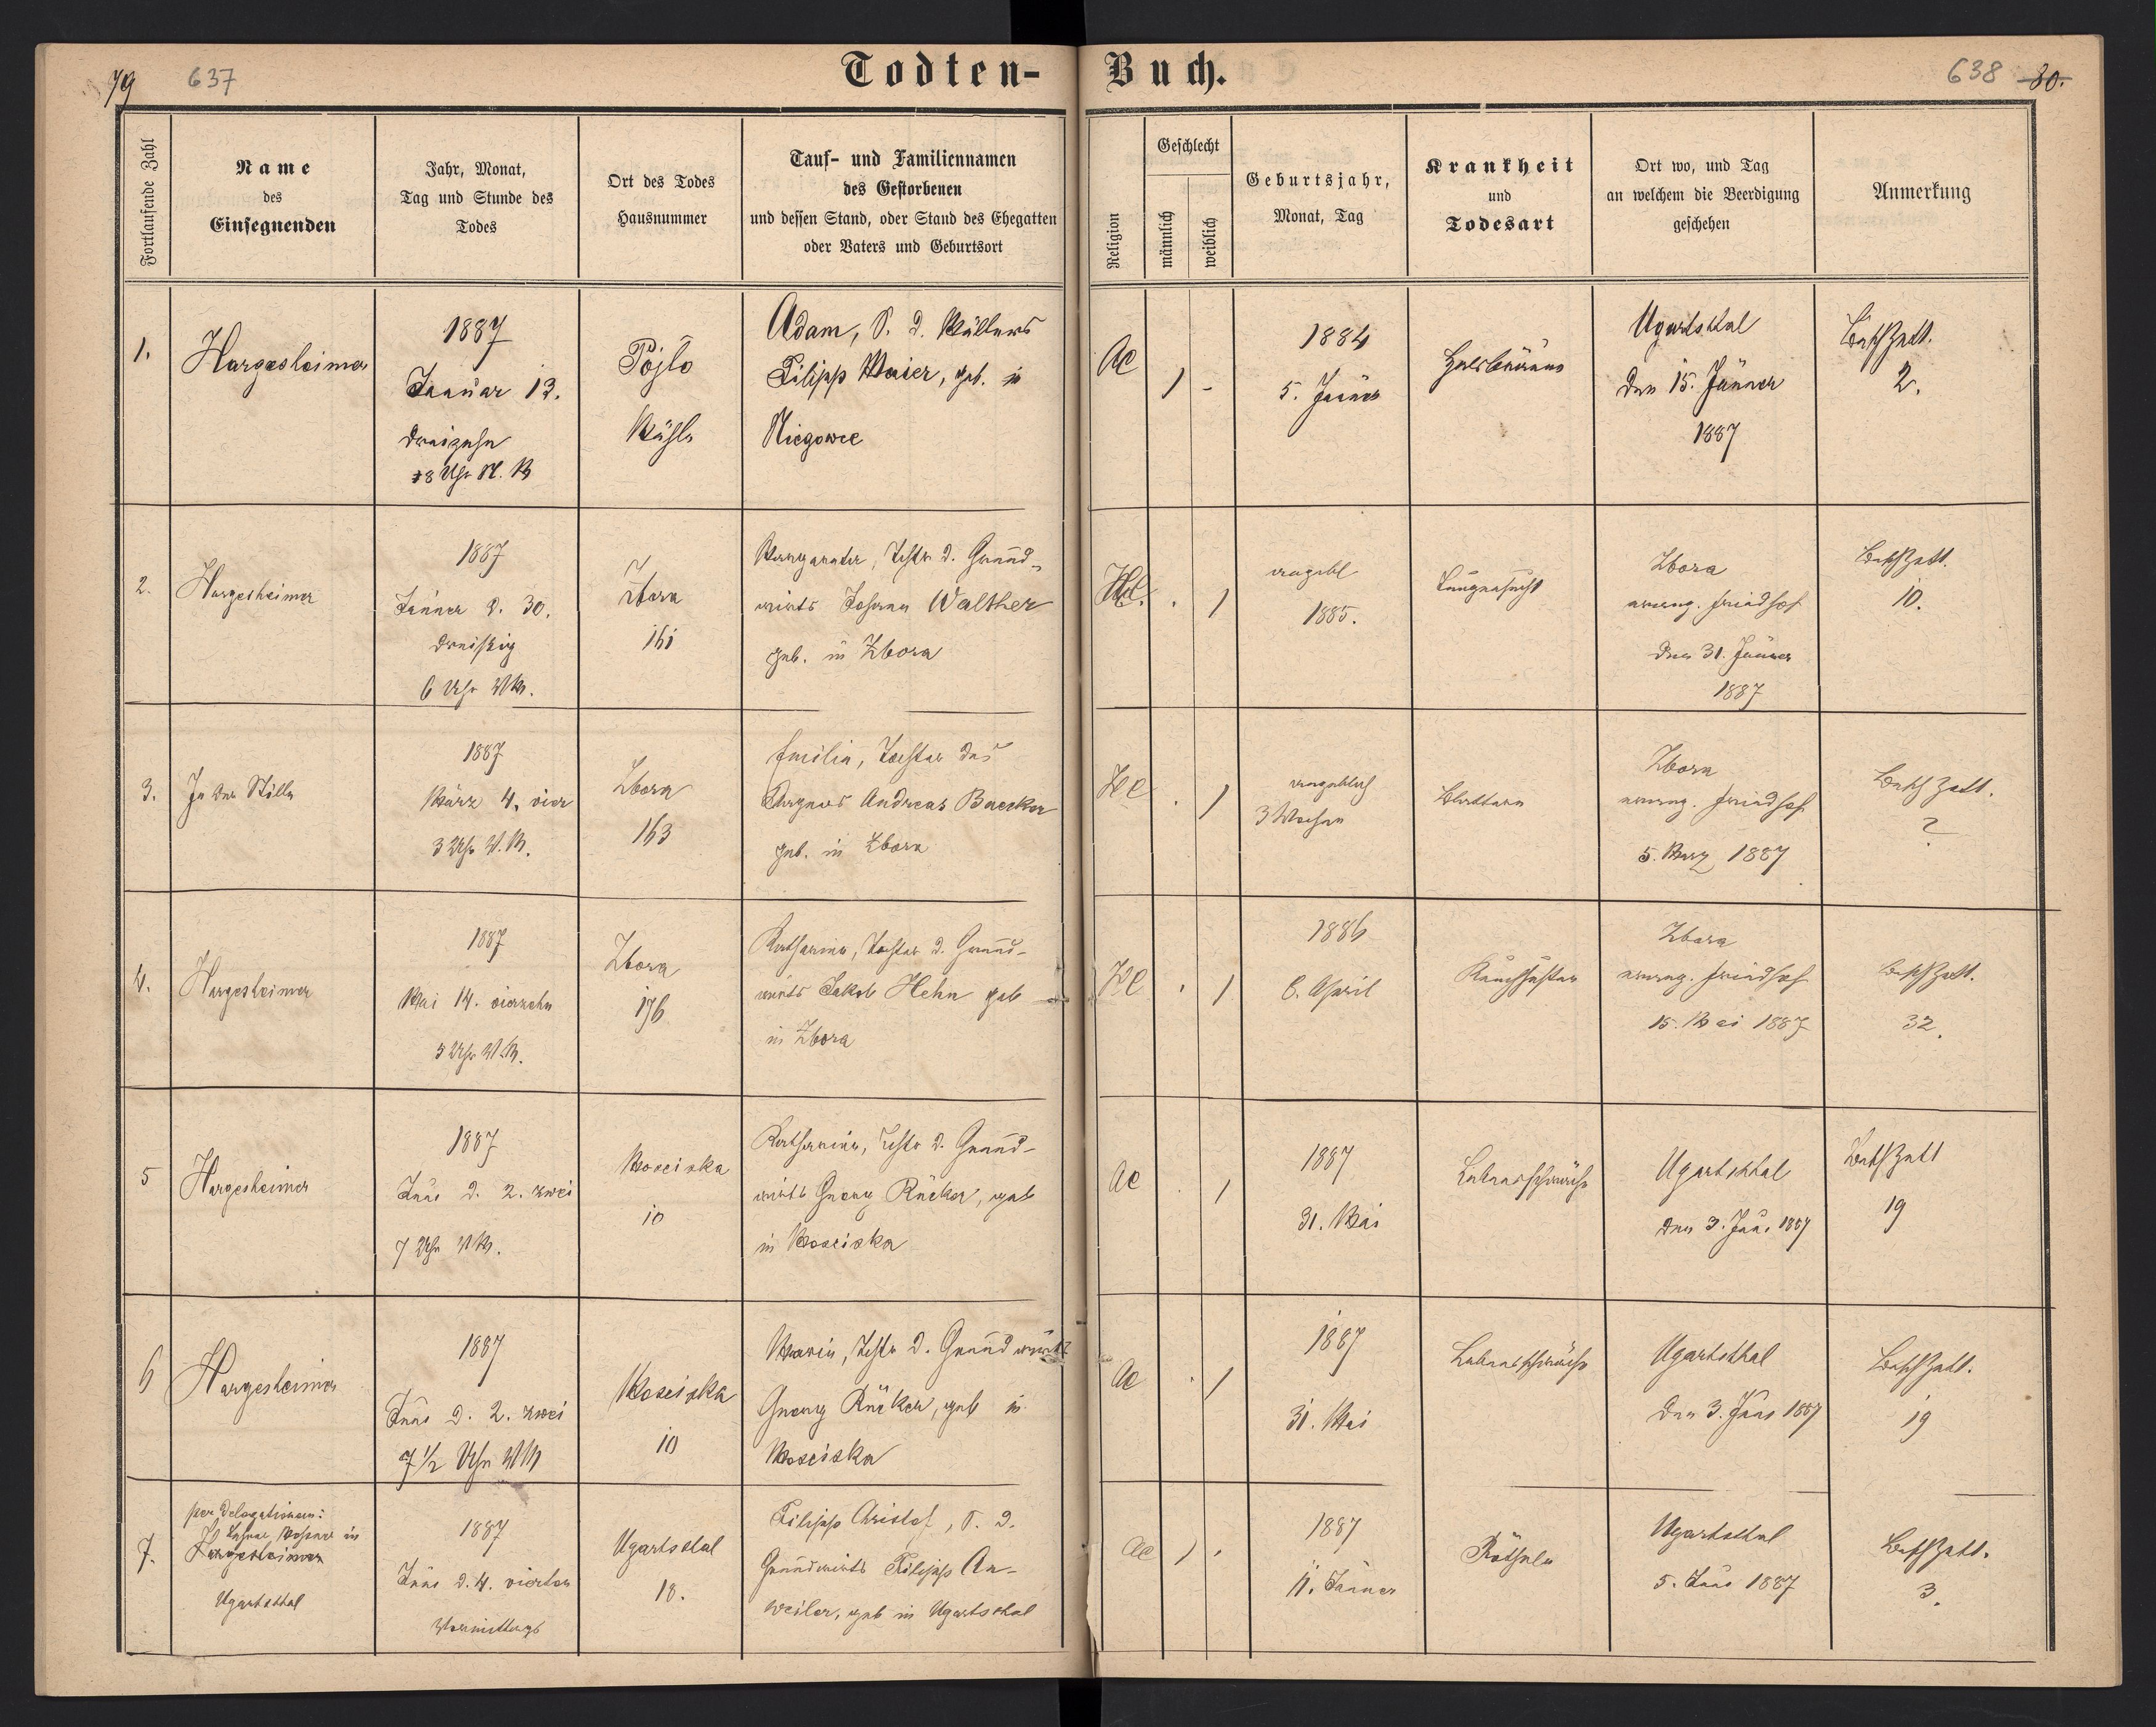 79 637
Todten-Buch.
638 80.
Fortlaufende Zahl
Name
des
Einsegnenden
Jahr, Monat,
Tag und Stunde des
Todes
Ort des Todes
Hausnummer
Tauf- und Familiennamen
des Gestorbenen
und dessen Stand, oder Stand des Ehegatten
oder Vaters und Geburtsort
Religion
Geschlecht
männlich
weiblich
Geburtsjahr,
Monat, Tag
Krankheit
und
Todesart
Ort wo, und Tag
an welchem die Beerdigung
geschehen
Anmerkung
1.
Hargesheimer
1887
Januar 13.
dreizehn
8 Uhr N. M
Pöjlo
Mühle
Adam, S. d. Müllers
Filipp Maier, geb. in
Niegowce
AC
1 -
1884
5. Jäner
Halsbräune
Ugartsthal
den 15. Jänner
1887
BuchZall.
2.
2.
Hargesheimer
1887
Jänner d. 30.
dreißig
6 Uhr VM.
Zbora
161
Margaretha, Tchtr d. Grund-
wirts Johann Walther
geb. in Zbora
HC.
. 1
angebl
1885.
Lungensucht
Zbora
evang. Friedhof
den 31. Jänner
1887
10.
3.
In der Stille
1887
März 4. vier
3 Uhr V. M.
Zbora
163
Emilie, Tochter des
Andreas Baecker
geb. in Zbora
HC
. 1
angeblich
3 Wochen
Blattern
Zbora
evang. Friedhof
5. März 1887
?
4.
Hargesheimer
1887
Mai 14. vierzehn
5 Uhr V.M.
Zbora
176
Katharina, Tochter d. Grund-
wirts Jakob Hehn geb
in Zbora
HC
. 1
1886
6. April
Keuchhusten
Zbora
evang. Friedhof
15. Mai 1887
32.
5
Hargesheimer
1887
Juni d. 2. zwei
7 Uhr VM.
Mosciska
10
Katharina, Tchtr d. Grund-
wirts Georg Rücker, geb
in Mosciska
AC
. 1
1887
31. Mai
Lebensschwäche
Ugartsthal
den 3. Juni 1887
19
6
Hargesheimer
1887
Juni d. 2. zwei
7 1/2 Uhr VM
Mosciska
10
Maria, Tchtr d. Grundwirts
Georg Rücker, geb in
Mosciska
AC
. 1
1887
31. Mai
Lebensschwäche
Ugartsthal
den 3. Juni 1887
19
7.
per Delegationem:
in
Hargesheimer
Ugartsthal
1887
Juni d. 4. vierten
Vormittags
Ugartsthal
18.
Filipp Christof, S. d.
Grundwirts Filipp An-
weiler, geb in Ugartsthal
AC
1 .
1887
11. Jänner
Rötheln
Ugartsthal
5. Juni 1887
3.